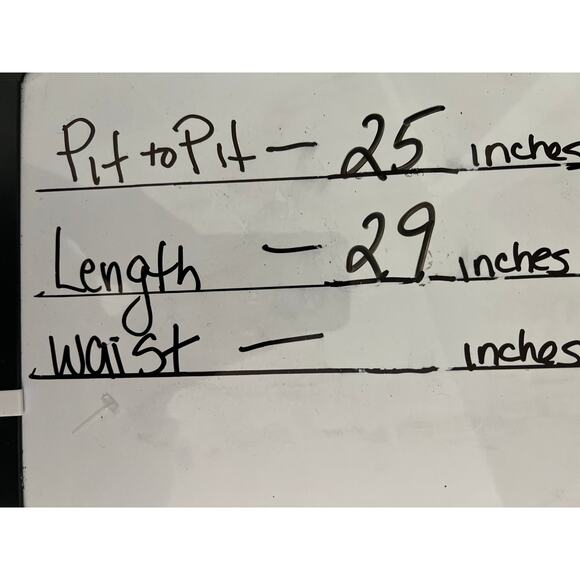 Pit to Pit — 25 inches
Length — 29 inches
Waist — inches